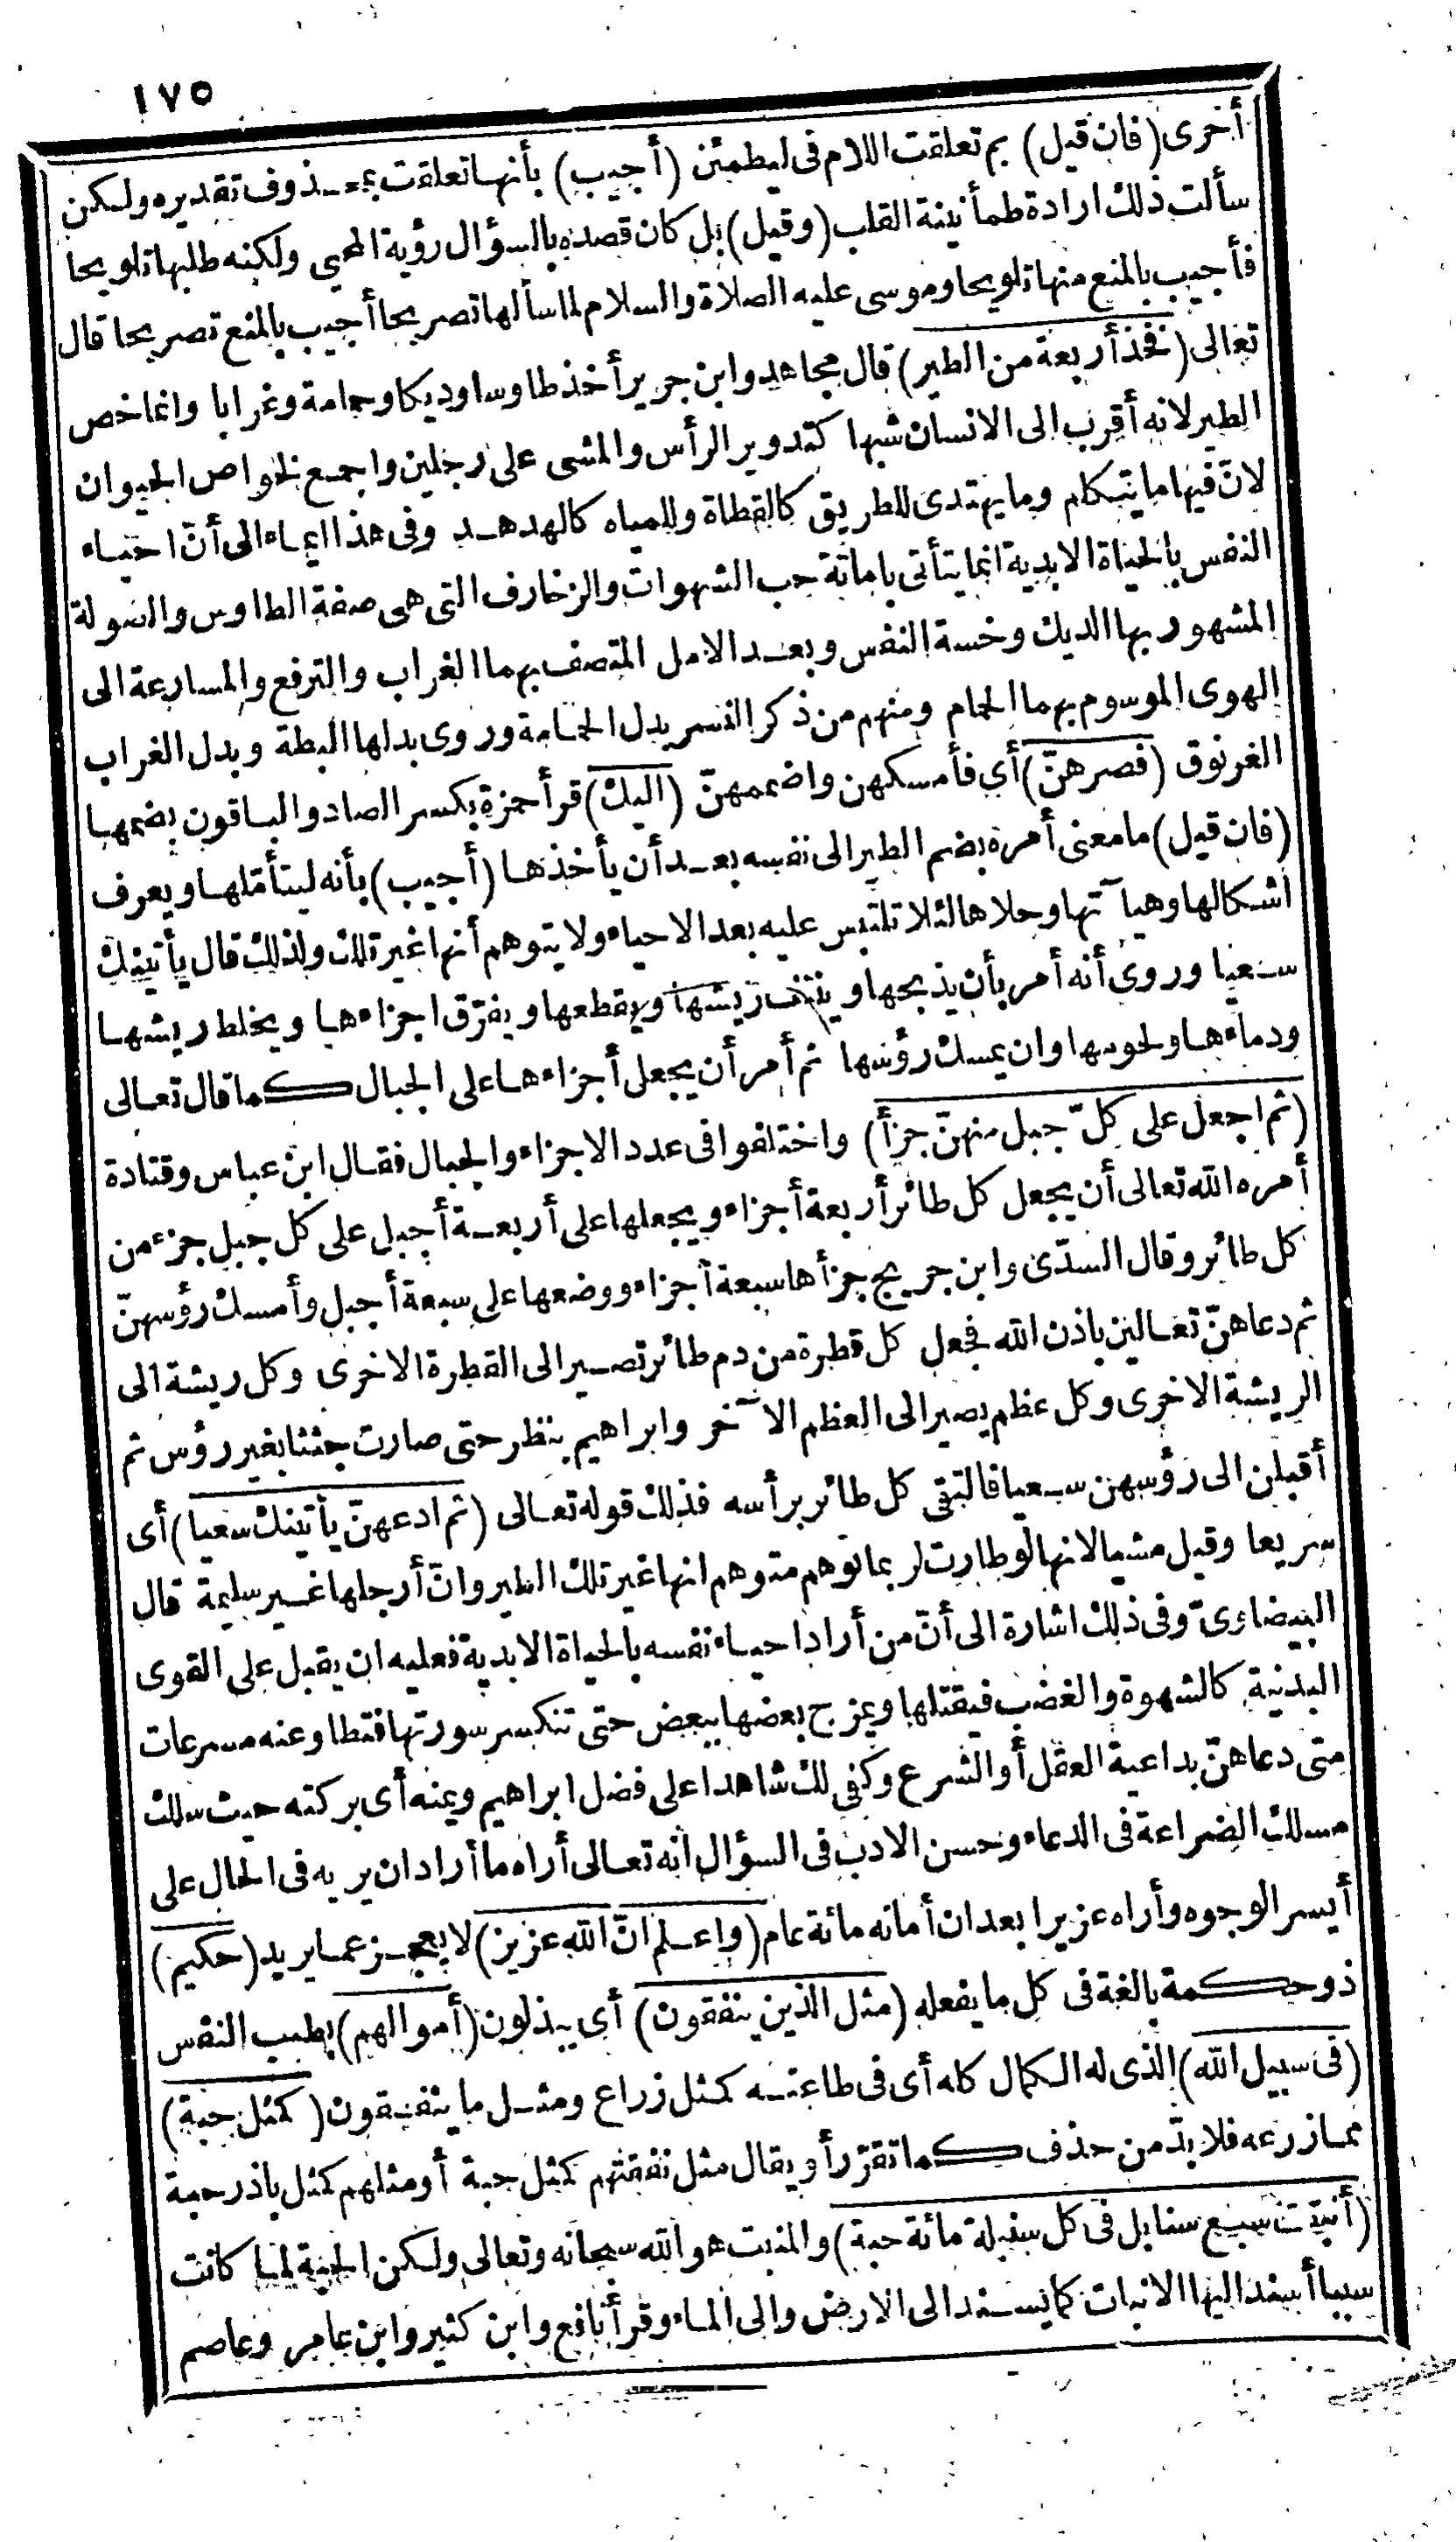 ١٧٥
أخرى (فان قيل) بم تعلقت اللام فى ليطمئن (أجيب) بأنها تعلقت بمحذوف تقديره ولكن
سألت ذلك ارادة طمأنينة القلب (وقيل) بل كان قصده بالسؤال رؤية المحيى ولكنه طلبها تلويحا
فأجيب بالمنع منها تلويحا وموسى عليه الصلاة والسلام لما سألها تصريحا أجيب بالمنع تصريحا قال
تعالى (فخذ أربعة من الطير) قال مجاهد وابن جرير أخذ طاوسا وديكا وحمامة وغرابا وانما خص
الطير لانه أقرب الى الانسان شبها كتدوير الرأس والمشى على رجلين واجمع لخواص الحيوان
لانّ فيها ما يتكلم وما يهتدى للطريق كالقطاة وللمياه كالهدهد وفى هذا ايماء الى أنّ احياء
النفس بالحياة الابدية انما يتأتى باماتة حب الشهوات والزخارف التى هى صفة الطاوس والصولة
المشهور بها الديك وخسة النفس وبعد الامل المتصف بهما الغراب والترفع والمسارعة الى
الهوى الموسوم بهما الحمام ومنهم من ذكر النسر بدل الحمامة وروى بدلها البطة وبدل الغراب
الغرنوق (فصرهنّ) أي فأمسكهن واضممهنّ (اليك) قرأ حمزة بكسر الصاد والباقون بضمها
(فان قيل) ما معنى أمره بضم الطير الى نفسه بعد أن يأخذها (أجيب) بأنه ليتأمّلها ويعرف
اشكالها وهيآتها وحلاها لئلا تلتبس عليه بعد الاحياء ولا يتوهم أنها غير تلك ولذلك قال يأتينك
سعيا وروى أنه أمر بأن يذبحها وينتف ريشها ويقطعها ويفرّق اجزاءها ويخلط ريشها
ودماءها ولحومها وان يمسك رؤسها ثم أمر أن يجعل أجزاءها على الجبال كما قال تعالى
(ثم اجعل على كلّ جبل منهنّ جزأ) واختلفوا فى عدد الاجزاء والجبال فقال ابن عباس وقتادة
أمره الله تعالى أن يجعل كل طائر أربعة أجزاء ويجعلها على أربعة أجبل على كل جبل جزء من
كل طائر وقال السدّى وابن جريج جزأها سبعة أجزاء ووضعها على سبعة أجبل وأمسك رؤسهنّ
ثم دعاهنّ تعالين باذن الله فجعل كل قطرة من دم طائر تصير الى القطرة الاخرى وكل ريشة الى
الريشة الاخرى وكل عظم يصير الى العظم الآخر وابراهيم ينظر حتى صارت جثثا بغير رؤس ثم
أقبلن الى رؤسهن سعيا فالتقى كل طائر برأسه فذلك قوله تعالى (ثم ادعهنّ يأتينك سعيا) أى
سريعا وقيل مشيا لانها لو طارت لربما توهم متوهم انها غير تلك الطير وانّ أرجلها غير سليمة قال
البيضاوىّ وفى ذلك اشارة الى أنّ من أراد احياء نفسه بالحياة الابدية فعليه ان يقبل على القوى
البدنية كالشهوة والغضب فيقتلها ويمزج بعضها ببعض حتى تنكسر سورتها فتطاوعنه مسرعات
متى دعاهنّ بداعية العقل أو الشرع وكفى لك شاهدا على فضل ابراهيم ويمنه أى بركته حيث سلك
مسلك الضراعة فى الدعاء وحسن الادب فى السؤال انه تعالى أراه ما أراد ان يريه فى الحال على
أيسر الوجوه وأراه عزيرا بعد ان أماته مائة عام (واعلم انّ الله عزيز) لا يعجز عما يريد (حكيم)
ذو حكمة بالغة فى كل ما يفعله (مثل الذين ينفقون) أى يبذلون (أموالهم) بطيب النفس
(فى سبيل الله) الذى له الكمال كله أى فى طاعته كمثل زراع ومثل ما ينفقون (كمثل حبة)
مما زرعه فلا بدّ من حذف كما تقرّر أو يقال مثل نفقتهم كمثل حبة أو مثلهم كمثل باذر حبة
(أنبتت سبع سنابل فى كل سنبلة مائة حبة) والمنبت هو الله سبحانه وتعالى ولكن الحبة لما كانت
سببا أسند اليها الانبات كما يسند الى الارض والى الماء وقرأ نافع وابن كثير وابن عامر وعاصم